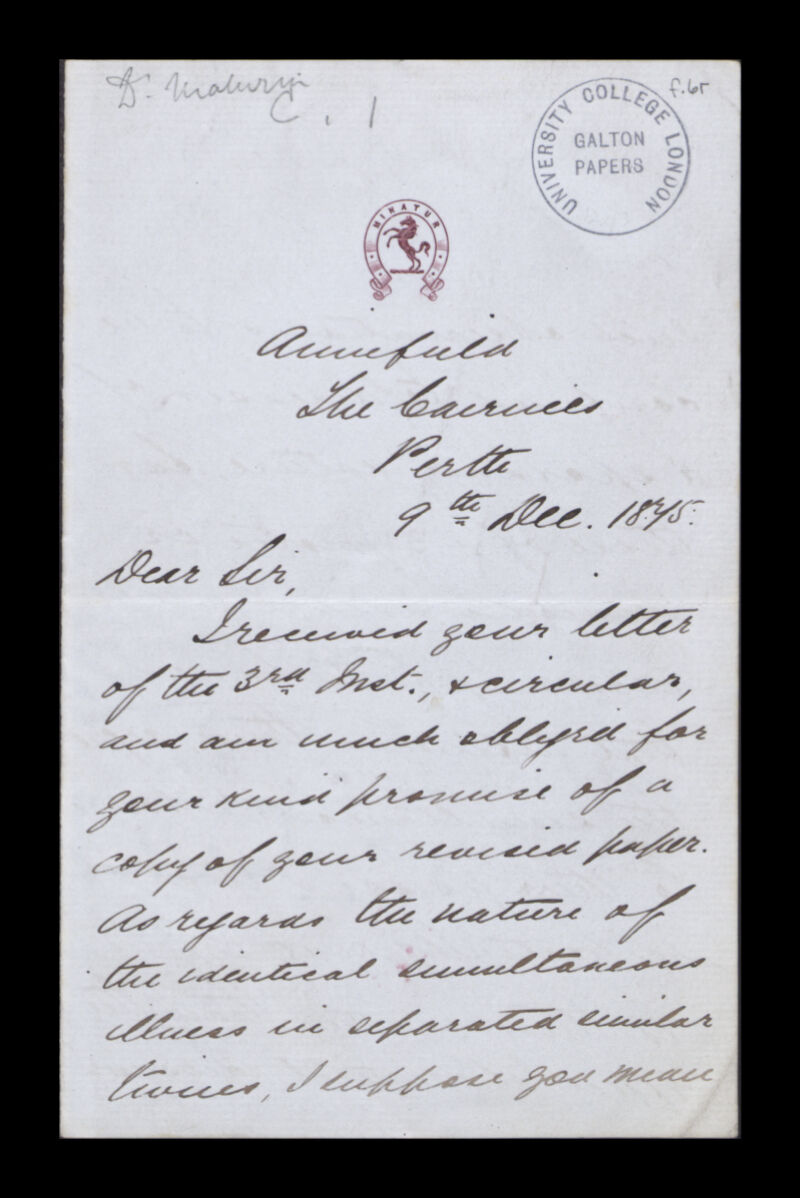 Dr.
C. 1
f.65
UNIVERSITY COLLEGE LONDON
GALTON
PAPERS
MINATUR
Anniefield
The Cairnies
Perth
9th Dec. 1875.
Dear Sir,
I received your letter
of the 3rd Inst., & circular,
and am much obliged for
your kind promise of a
copy of your revised paper.
As regards the nature of
the identical simultaneous
illness in separated similar
twins, I suppose you mean